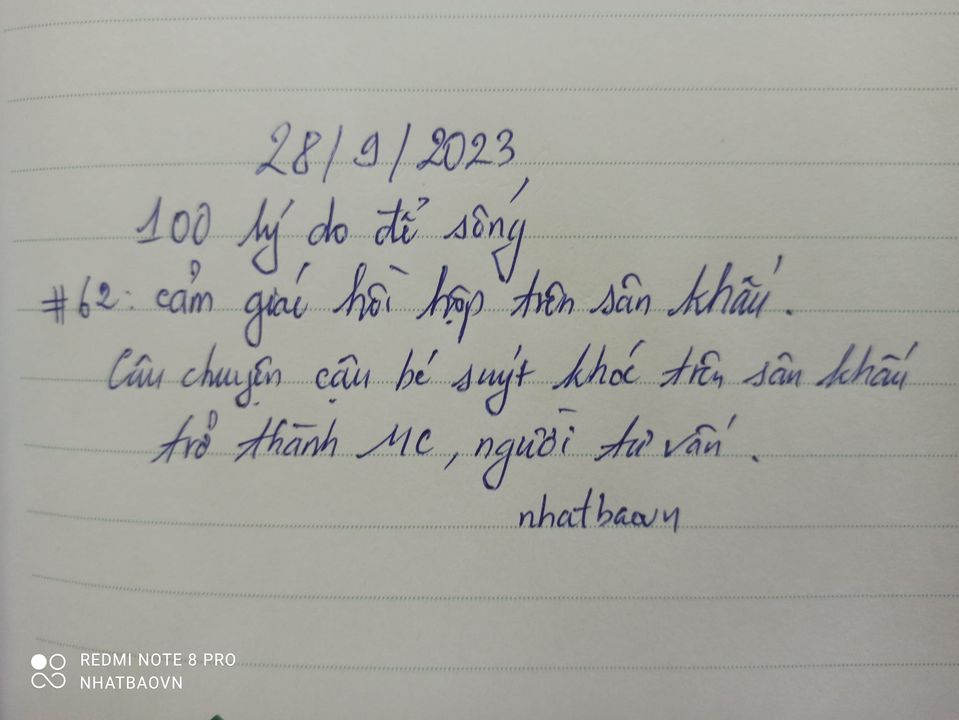 28/9/2023
100 lý do để sống
#62: cảm giác hồi hộp trên sân khấu.
Câu chuyện cậu bé suýt khóc trên sân khấu
trở thành MC, người tư vấn.
nhatbaovn
REDMI NOTE 8 PRO
NHATBAOVN